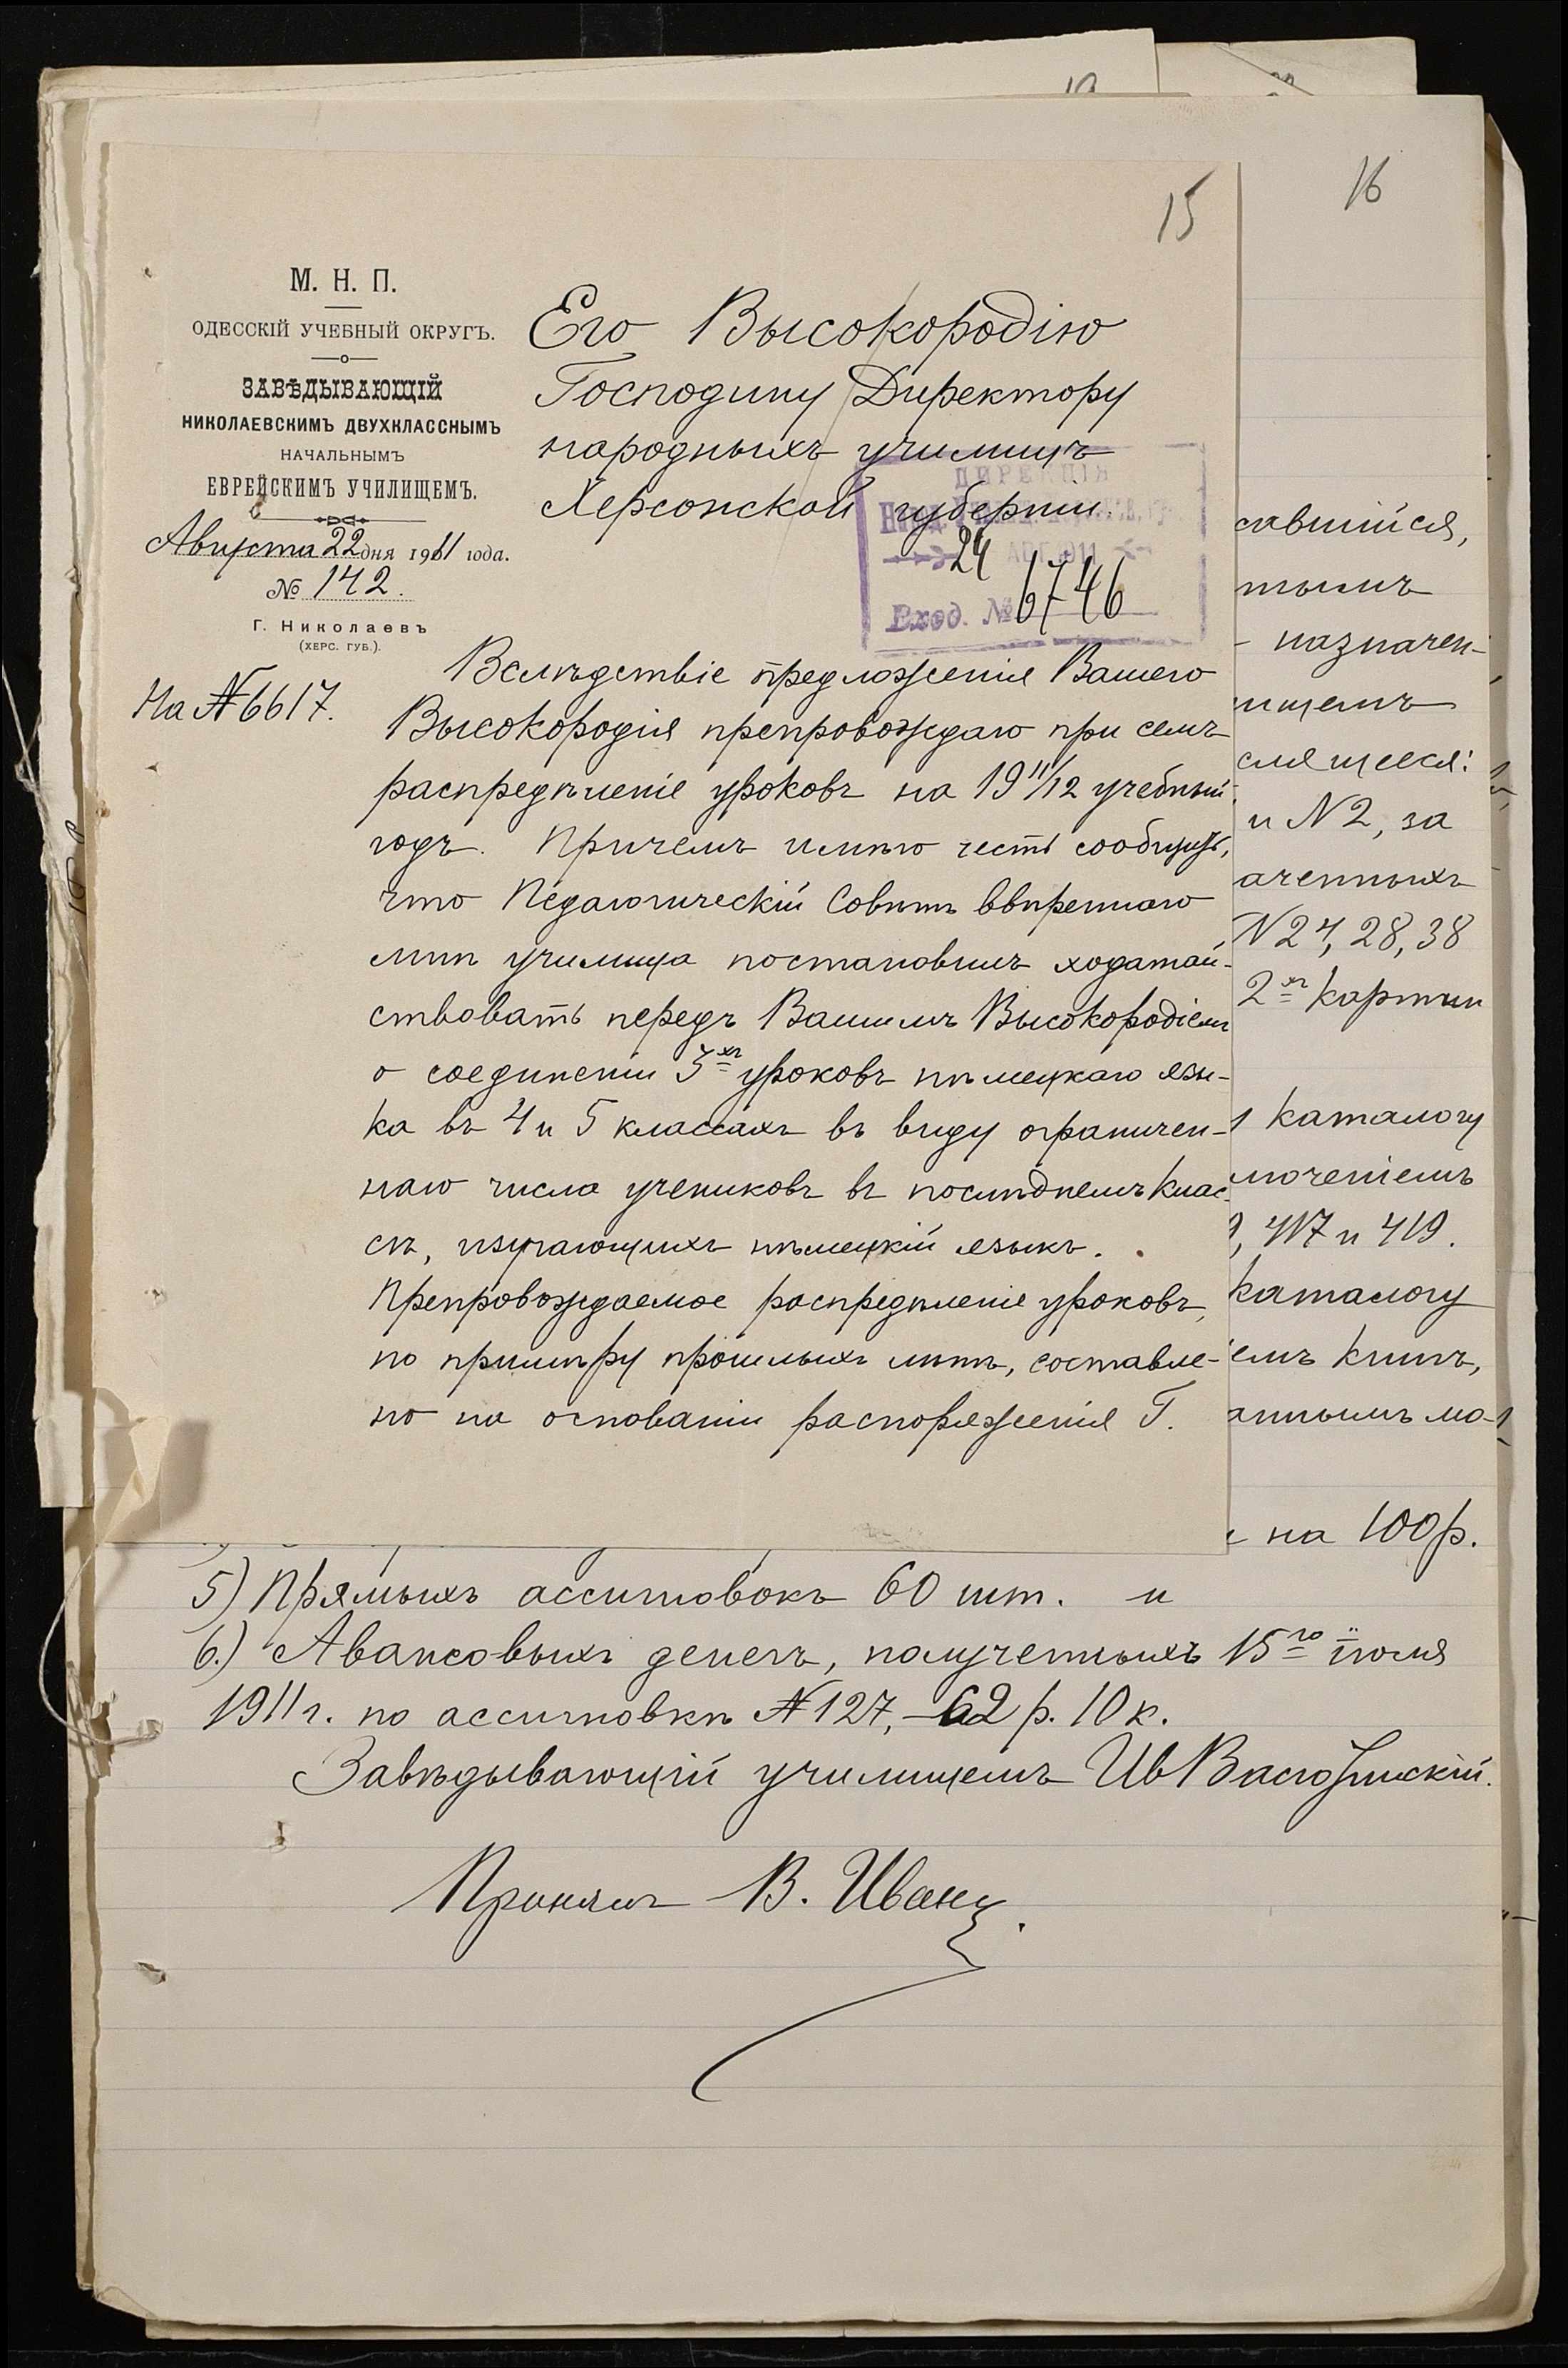 15
М. Н. П.
ОДЕССКІЙ УЧЕБНЫЙ ОКРУГЪ.
ЗАВѢДЫВАЮЩІЙ
НИКОЛАЕВСКИМЪ ДВУХКЛАССНЫМЪ
НАЧАЛЬНЫМЪ
ЕВРЕЙСКИМЪ УЧИЛИЩЕМЪ.
Августа 22 дня 1911 года.
№ 142.
Г. Николаевъ
(ХЕРС. ГУБ.).
На №6617.
Его Высокородію
Господину Директору
народныхъ училищъ
Херсонской губерніи.
ДИРЕКЦІЯ
24 АВГ 1911
Вход. № 6746
Вслѣдствіе предложенія Вашего
Высокородія препровождаю при семъ
распредѣленіе уроковъ на 19 11/12 учебный
годъ. Причемъ имѣю честь сообщить,
что Педагогическій Совѣтъ ввѣреннаго
мнѣ училища постановилъ ходатай-
ствовать передъ Вашимъ Высокородіемъ
о соединеніи 3хъ уроковъ нѣмецкаго язы-
ка въ 4 и 5 классахъ въ виду ограничен-
наго числа учениковъ въ послѣднемъ клас-
сѣ, изучающихъ нѣмецкій языкъ.
Препровождаемое распредѣленіе уроковъ,
по примѣру прошлыхъ лѣтъ, составле-
но на основаніи распоряженія Г.
16
савшійся,
тымъ
- назначен-
ищемъ
слящееся:
и №2, за
аченныхъ
№24, 28, 38
2хъ картин
каталогу
люченіемъ
417 и 419.
каталогу
емъ книгъ,
аннымъ мо-
на 100р.
5) Прямыхъ ассигновокъ 60 шт. и
6.) Авансовыхъ денегъ, полученныхъ 15го іюля
1911г. по ассигновкѣ №127, - 62 р. 10 к.
Завѣдывающій училищемъ Ив
Принялъ В. Иванц